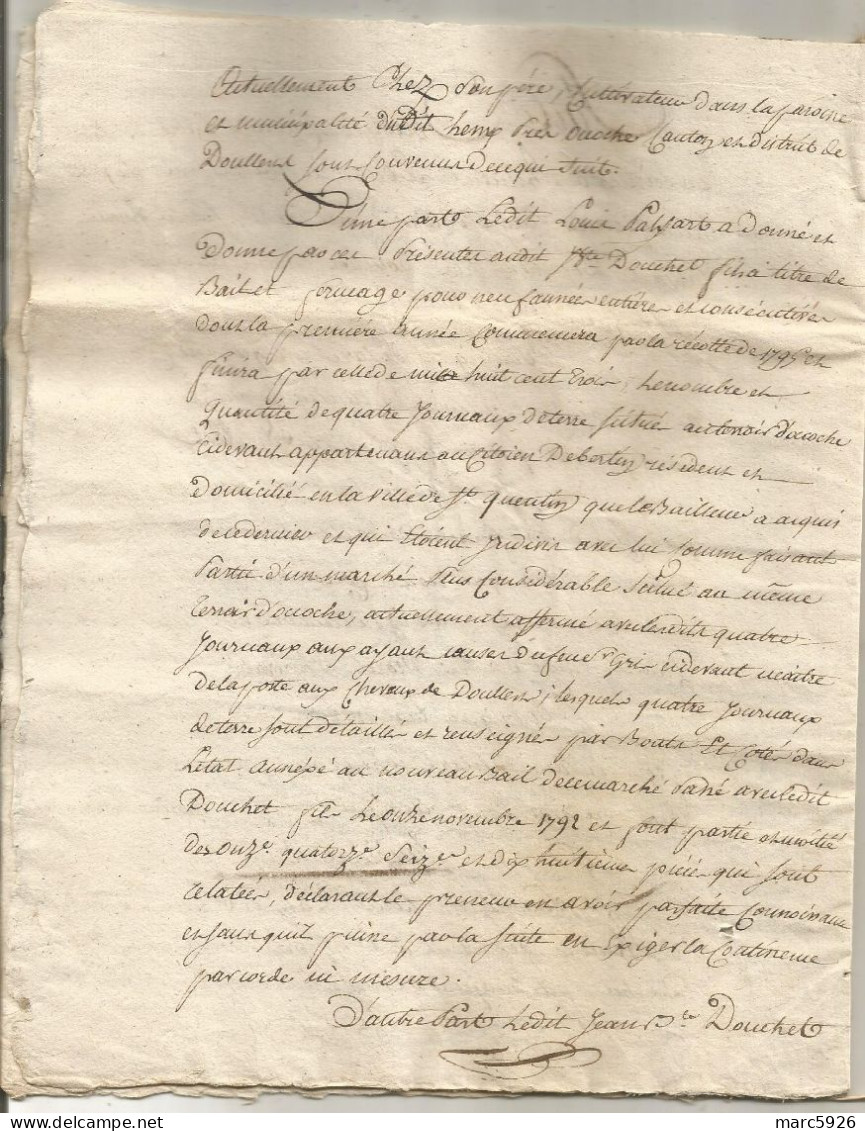 Actuellement Chez Son père, Cultivateur dans la paroisse
et municipalité dudit hem près ococher Canton et District de
Doullens sont Convenus de ce qui Suit.
D'une part Ledit Louis Palyart a Donné et
Donne par ces Présentes audit J. Bte Douchet fils à titre de
Bail et fermage pour neuf années entières et consécutives
dont la première année Commencera par la récolte de 1795 et
finira par celle de mil huit cent trois, le nombre et
Quantité de quatre Journaux de terre situés au terroir d'ococher
cidevant appartenans au Citoien Debertin résident et
Domicilié en la ville de St. quentin que le Bailleur a acquis
de ce dernier et qui Etoient Indivis avec lui Comme faisant
Partie d'un marché Plus Considérable Scitué au même
terroir d'ococher, actuellement affermé avec lesdits quatre
Journaux aux ayant causes de feu Sr Gri cidevant maitre
de la poste aux Chevaux de Doullens; lesquels quatre Journaux
de terre sont détaillés et renseignés par Bouts Et Cotés dans
L'état annéxé au nouveau Bail de ce marché Passé avec ledit
Douchet fils Le onze novembre 1792 et font partie et moitié
des onze. quatorze. Seize. et dix huitième pièces qui sont
relatées, déclarant le preneur en avoir parfaite Connoissance
et sans qu'il puisse par la Suite en Exiger la Contenance
par corde ni mesure.
D'autre Part Ledit Jean Bte Douchet
marc5926